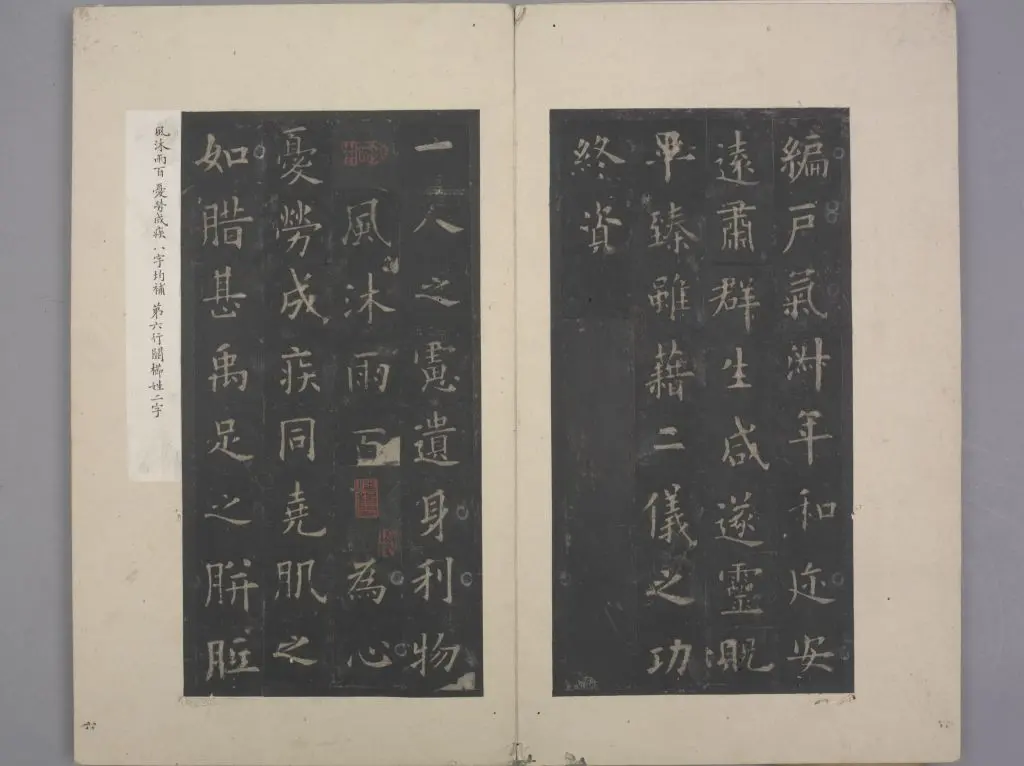 編戶氣淑年和迩安
遠肅群生咸遂靈貺
畢臻雖藉二儀之功
終資
一人之慮遺身利物
風沐雨百為心
憂勞成疾同堯肌之
如腊甚禹足之胼胝
風沐雨百 憂勞成疾八字均補 第六行闕櫛姓二字